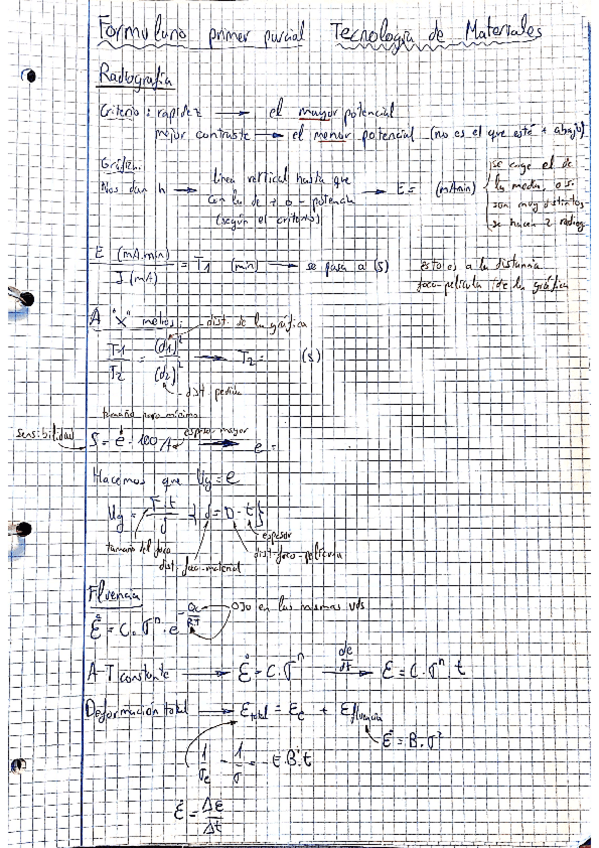 Formulario primer parcial Tecnología de Materiales
Radiografía
Criterio: rapidez → el mayor potencial
mejor contraste → el menor potencial (no es el que esté + abajo)
Gráfica
Nos dan h → línea vertical hasta que → E = (mAmin)
con la de + o - potencia
(según el criterio)
se coge el de
la media, o si
son muy distintos
se hacen 2 radiog.
E (mA.min) / I (mA) = T1 (min) → se pasa a (s)
esto es a la distancia
foco-película de la gráfica
A "x" metros:
dist. de la gráfica
T1/T2 = (d1)²/(d2)² → T2 = (s)
dist. pedida
tamaño poro mínimo
sensibilidad S = e · 100/A espesor mayor → e =
Hacemos que Ug = e
Ug = F·t/d → {d = D - t}
espesor
tamaño del foco
dist. foco-película
dist. foco-material
Fluencia
ε̇ = C · σⁿ · e^(-Qc/RT) ojo en las mismas uds
A T constante → ε̇ = C · σⁿ dε/dt → ε = C · σⁿ · t
Deformación total → εtotal = εe + εfluencia
ε̇ = B · σ²
ε̇ = Δε/Δt